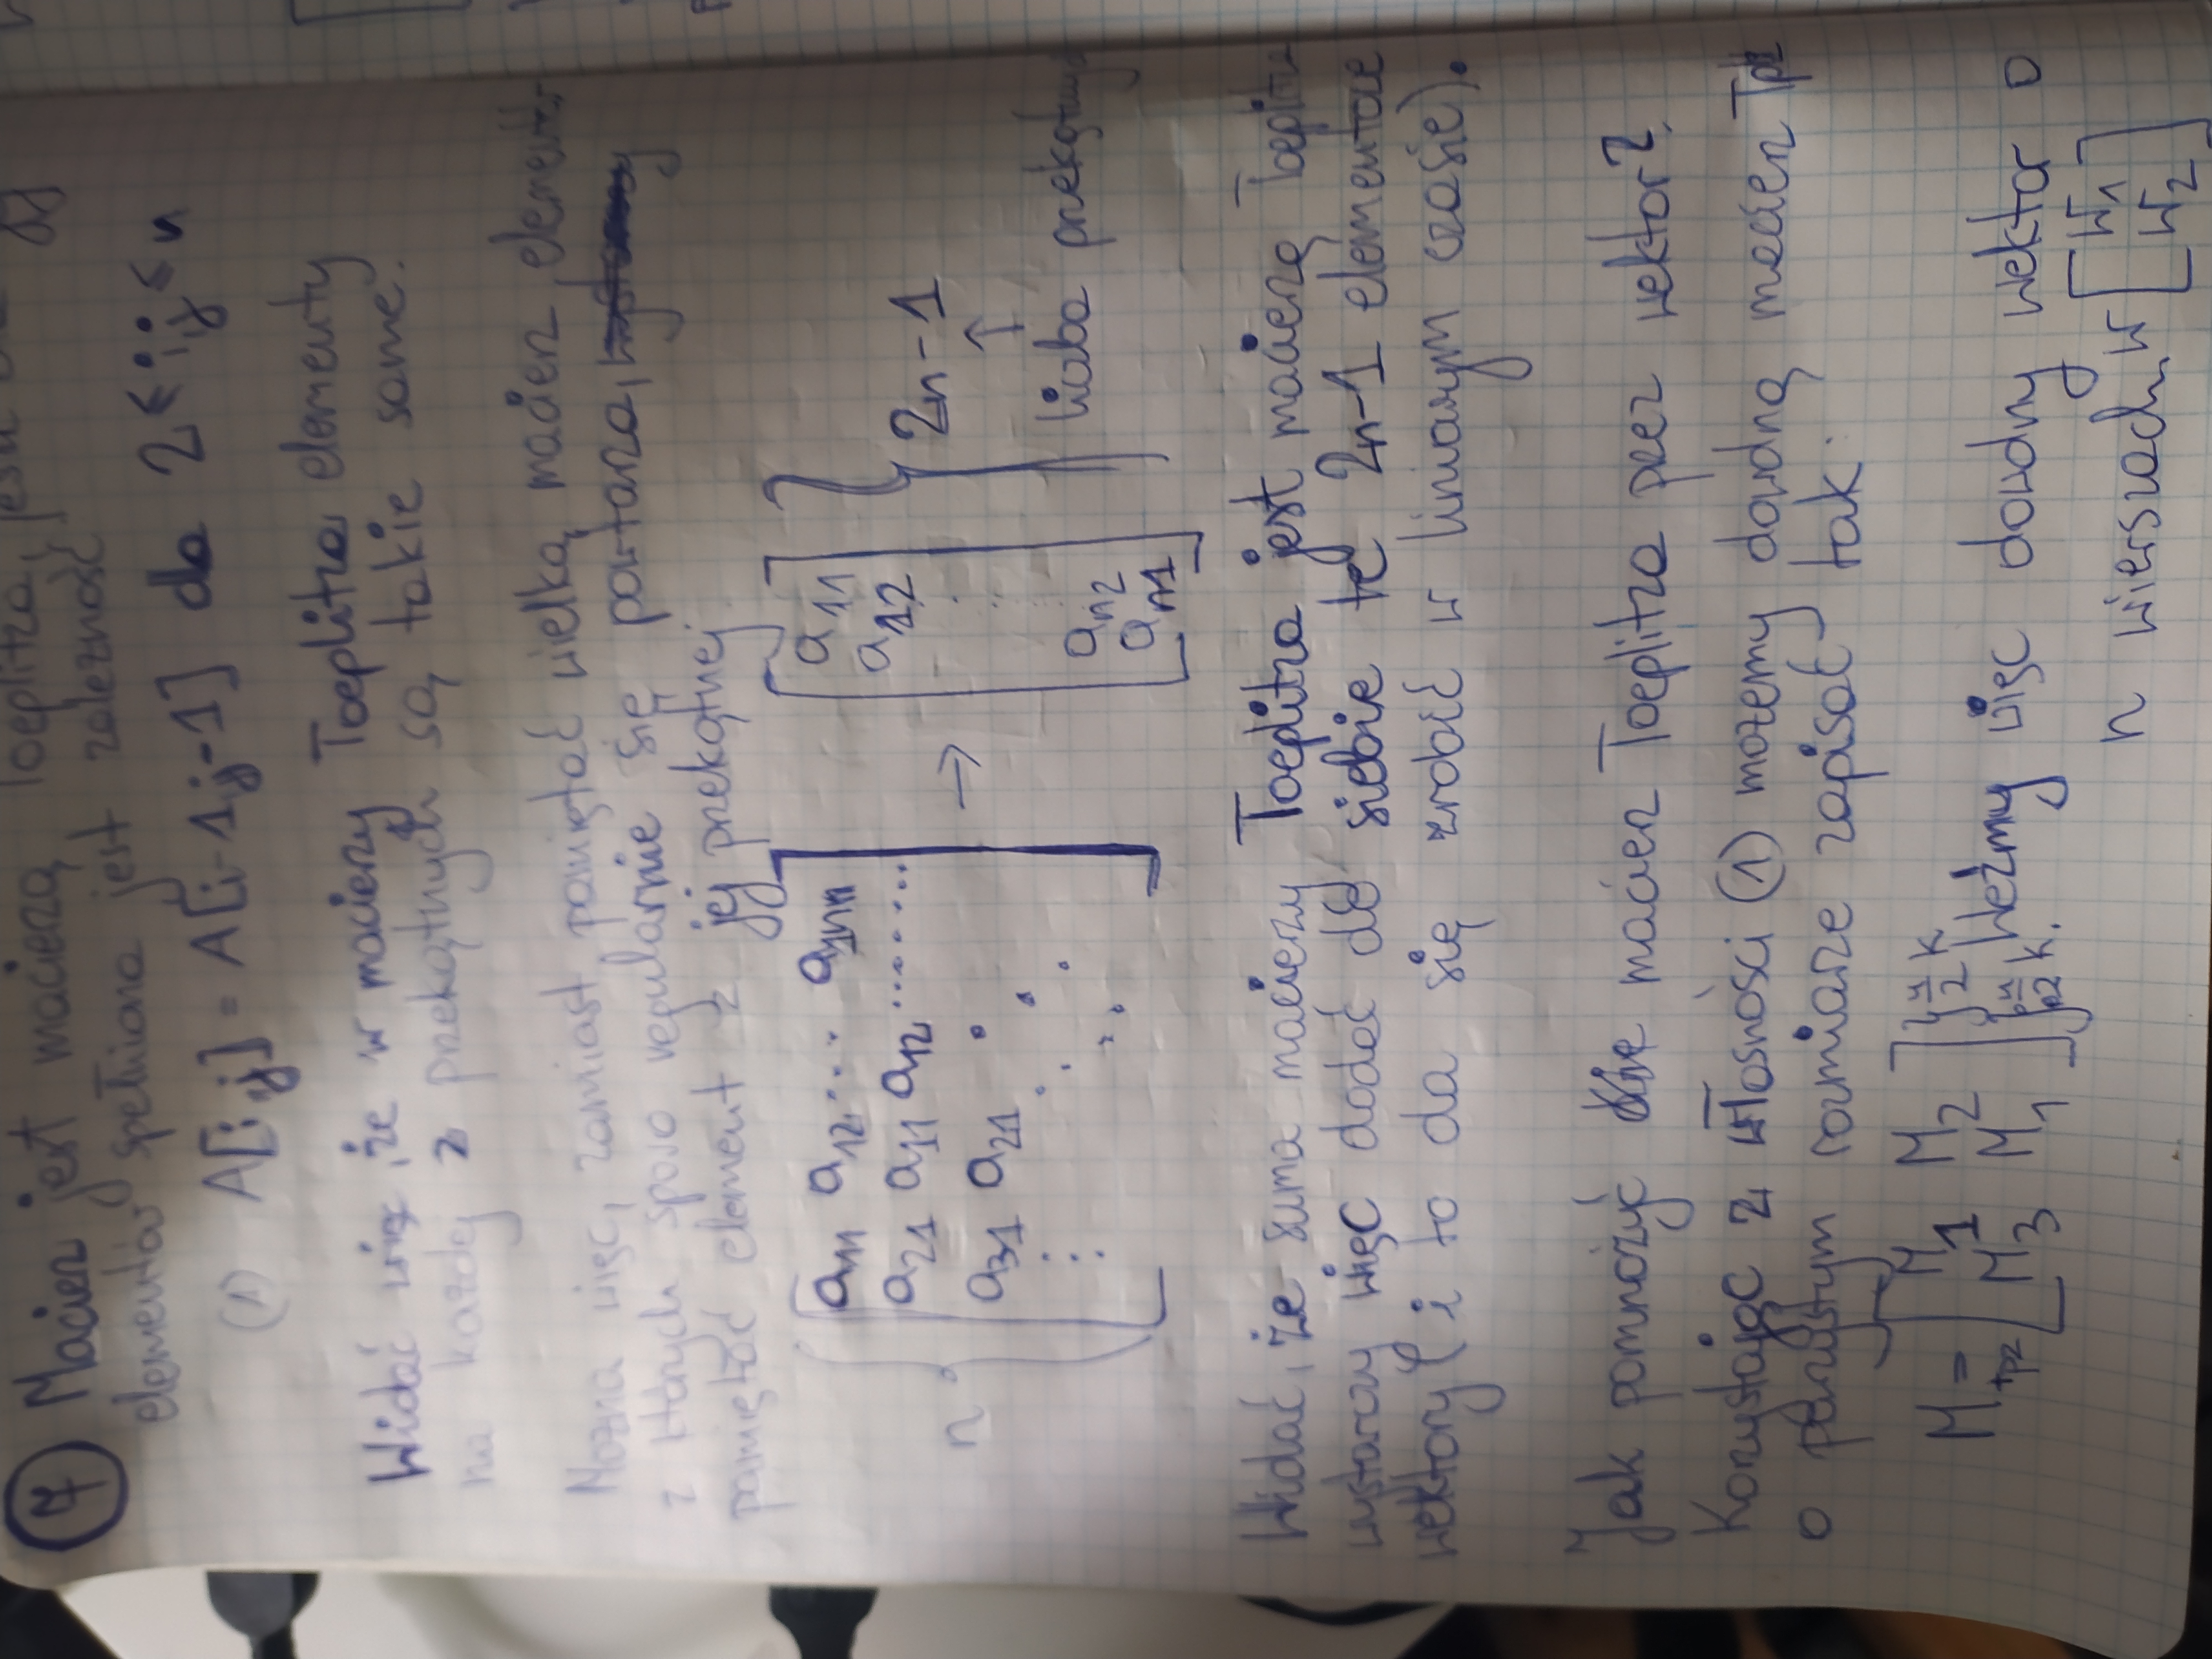 7 Macierz jest macierzą Toeplitza,
elementów spełniona jest zależność
(1) A[i,j] = A[i-1,j-1] dla 2≤i,j≤n
Widać więc, że w macierzy Toeplitza elementy
na każdej z przekątnych są takie same.
Można więc, zamiast pamiętać wielką macierz,
z których sporo regularnie się powtarza,
pamiętać element z jej przekątnej
n { [ a11 a12 ... a1n
a21 a11 a12 ........
a31 a21 ] → [ a11
a12
⋮
an2
an1 ] } 2n-1
↑
liczba
Widać, że suma macierzy Toeplitza jest macierzą
wystarczy więc dodać do siebie te 2n-1 elementowe
wektory (i to da się zrobić w liniowym czasie).
Jak pomnożyć macierz Toeplitza przez wektor?
Korzystając z własności (1) możemy dowolną macierz Tplz
o parzystym rozmiarze zapisać tak:
M tpz = [ M1 M2
M3 M1 ] } n/2 k
} n/2 k. Weźmy więc dowolny wektor o
n wierszach w [ w1
w2 ]